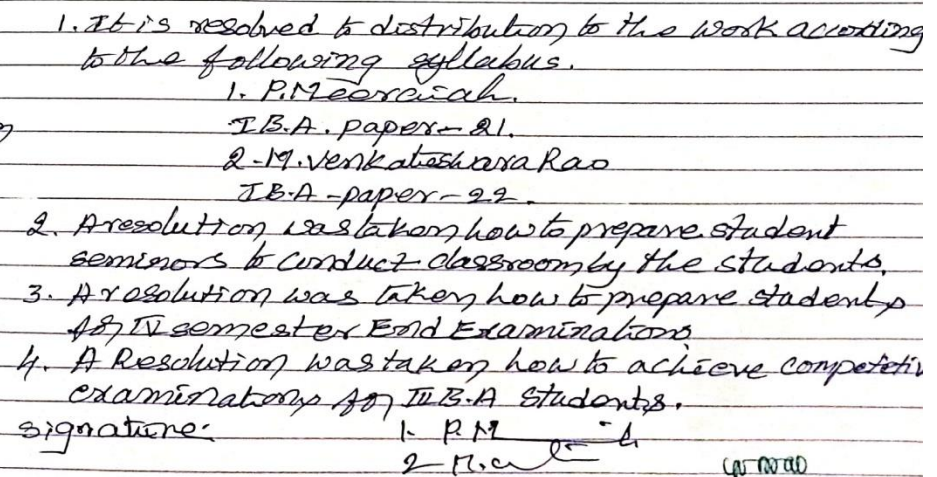 1. It is resolved to distribution to the work according
to the following syllabus.
1. P. Meeraiah.
I B.A. paper - 21.
2 - M. Venkateshwara Rao
I B.A - paper - 22.
2. A resolution was taken how to prepare student
seminors to conduct classroom by the students.
3. A resolution was taken how to prepare students
for IV semester End Examinations
4. A Resolution was taken how to achieve competetiv
examinations for III B.A Students.
signature:
1. P. M
2 M.